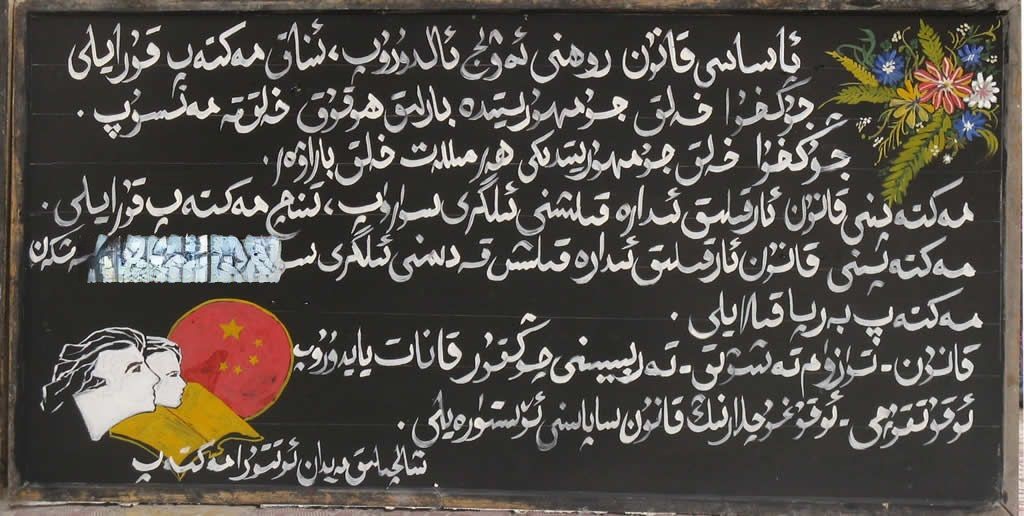 ئاساسىي قانۇن روھىنى ئەۋج ئالدۇرۇپ، ئىناق مەكتەپ قۇرايلى
جۇڭخۇا خەلق جۇمھۇرىيىتىدە بارلىق ھوقۇق خەلقتە مەنسۇپ.
جۇڭخۇا خەلق جۇمھۇرىيىتىدىكى ھەر مىللەت خەلق باراۋەر.
مەكتەپنى قانۇن ئارقىلىق ئىدارە قىلىشنى ئىلگىرى سۈرۈپ، تىنچ مەكتەپ قۇرايلى.
مەكتەپنى قانۇن ئارقىلىق ئىدارە قىلىش ئىلگىرى
مەكتەپ بەرپا قىلايلى.
قانۇن - تۈزۈم تەشۋىق - تەربىيىسىنى قانات يايدۇرۇپ
ئوقۇتقۇچى - ئوقۇغۇچىلارنىڭ قانۇن ساپاسىنى ئۆستۈرەيلى.
مەيدان ئوتتۇرا مەكتەپ